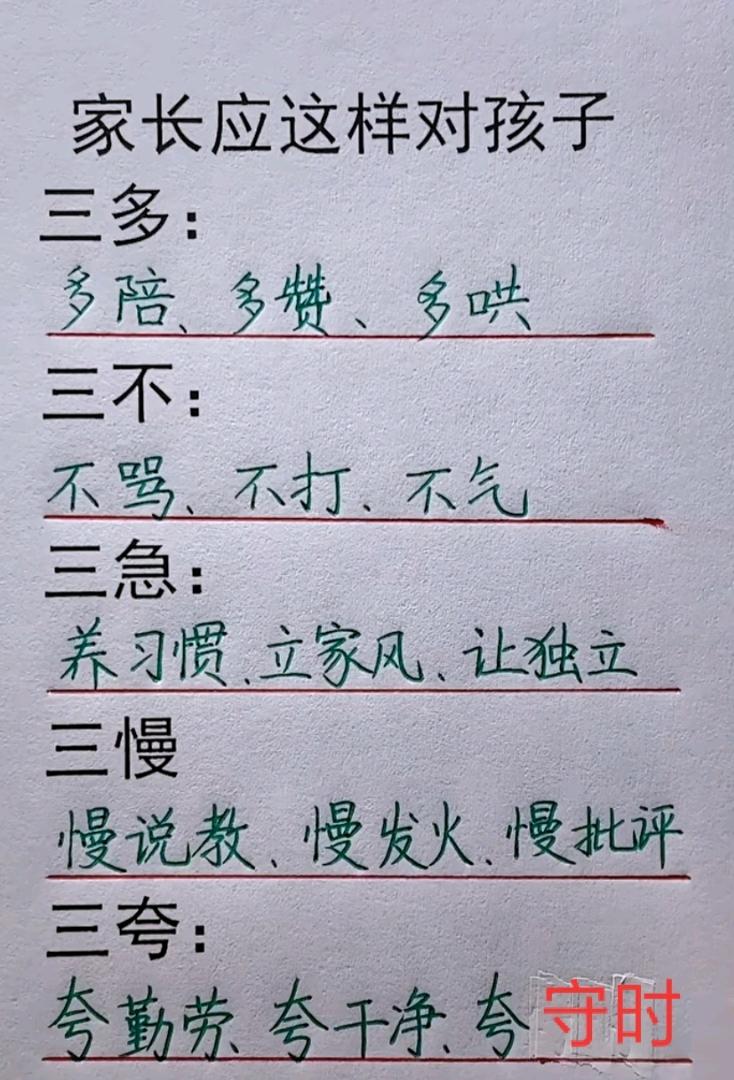 家长应这样对孩子
三多：
多陪、多赞、多哄
三不：
不骂、不打、不气
三急：
养习惯、立家风、让独立
三慢
慢说教、慢发火、慢批评
三夸：
夸勤劳、夸干净、夸守时